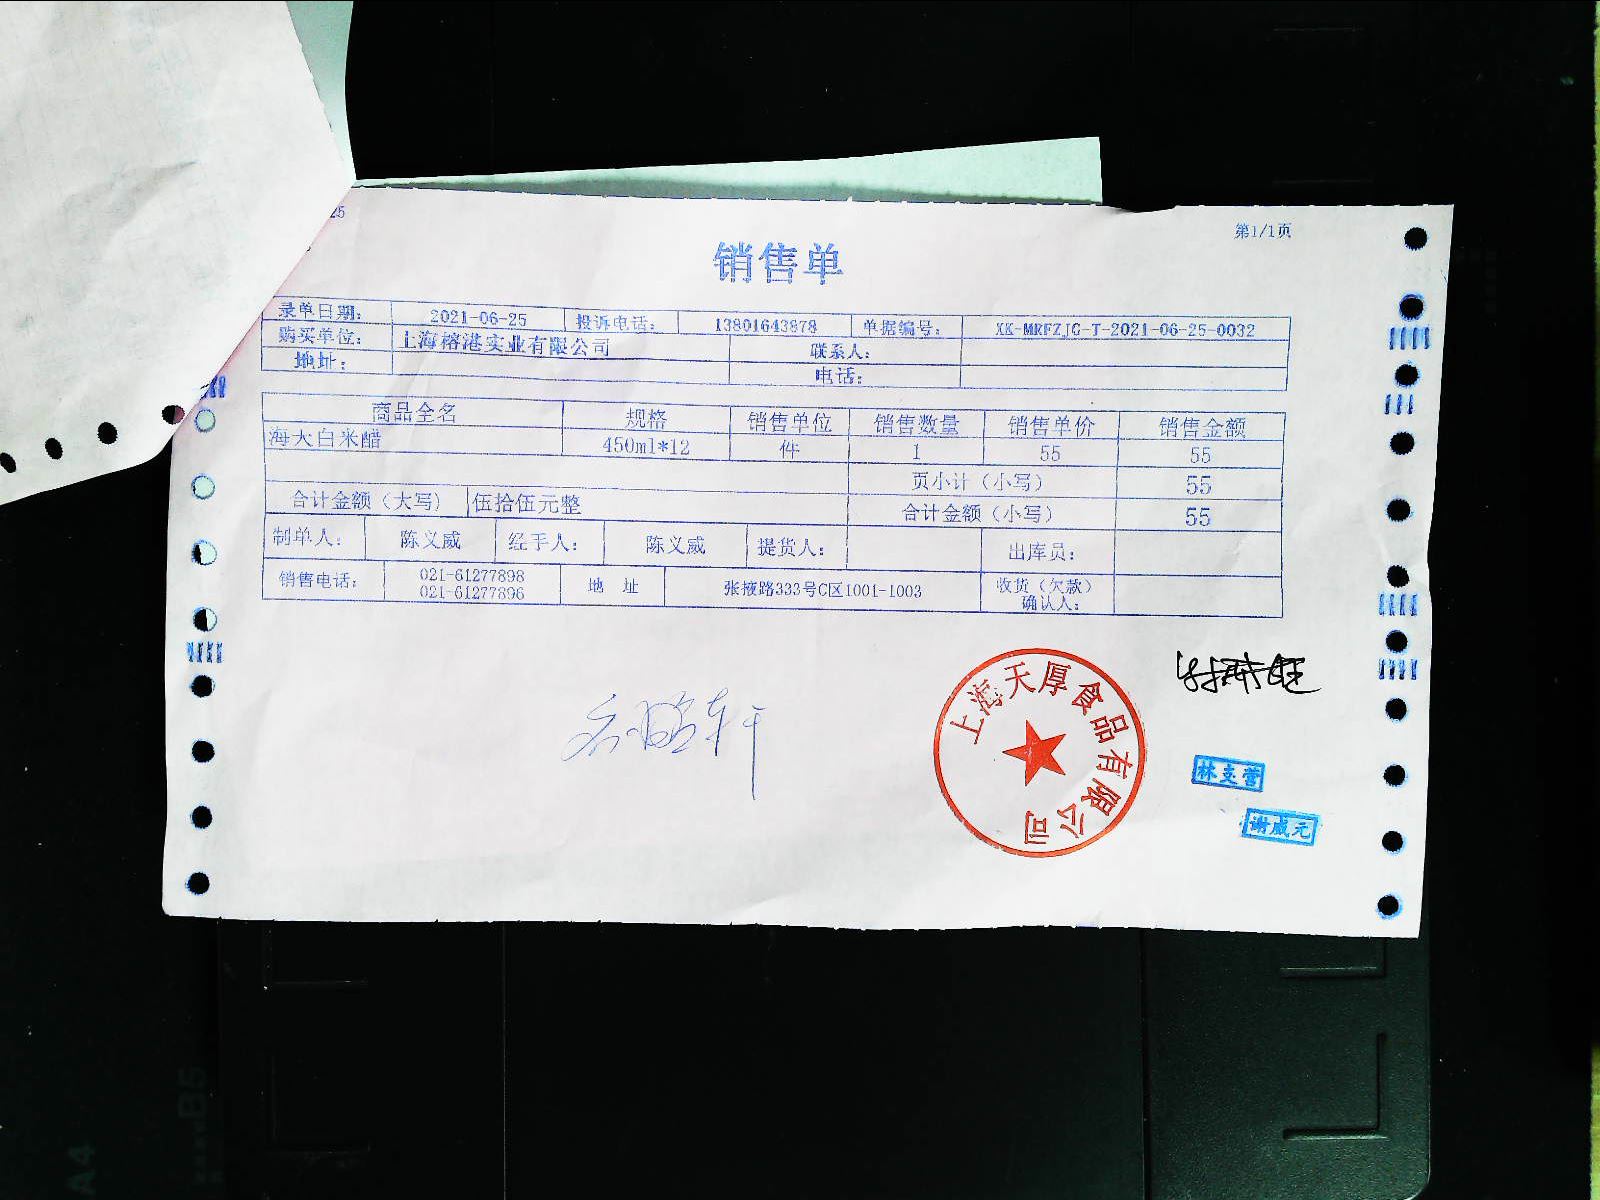 25
第1/1页
销售单
录单日期: 2021-06-25 投诉电话: 13801643878 单据编号: XK-MRFZJG-T-2021-06-25-0032
购买单位: 上海榕港实业有限公司 联系人:
地址: 电话:
商品全名 规格 销售单位 销售数量 销售单价 销售金额
海天白米醋 450ml*12 件 1 55 55
页小计（小写） 55
合计金额（大写） 伍拾伍元整 合计金额（小写） 55
制单人: 陈义威 经手人: 陈义威 提货人: 出库员:
销售电话: 021-61277898 021-61277896 地 址 张掖路333号C区1001-1003 收货（欠款）确认人:
上海天厚食品有限公司
林支营
谢威元
A4
B5